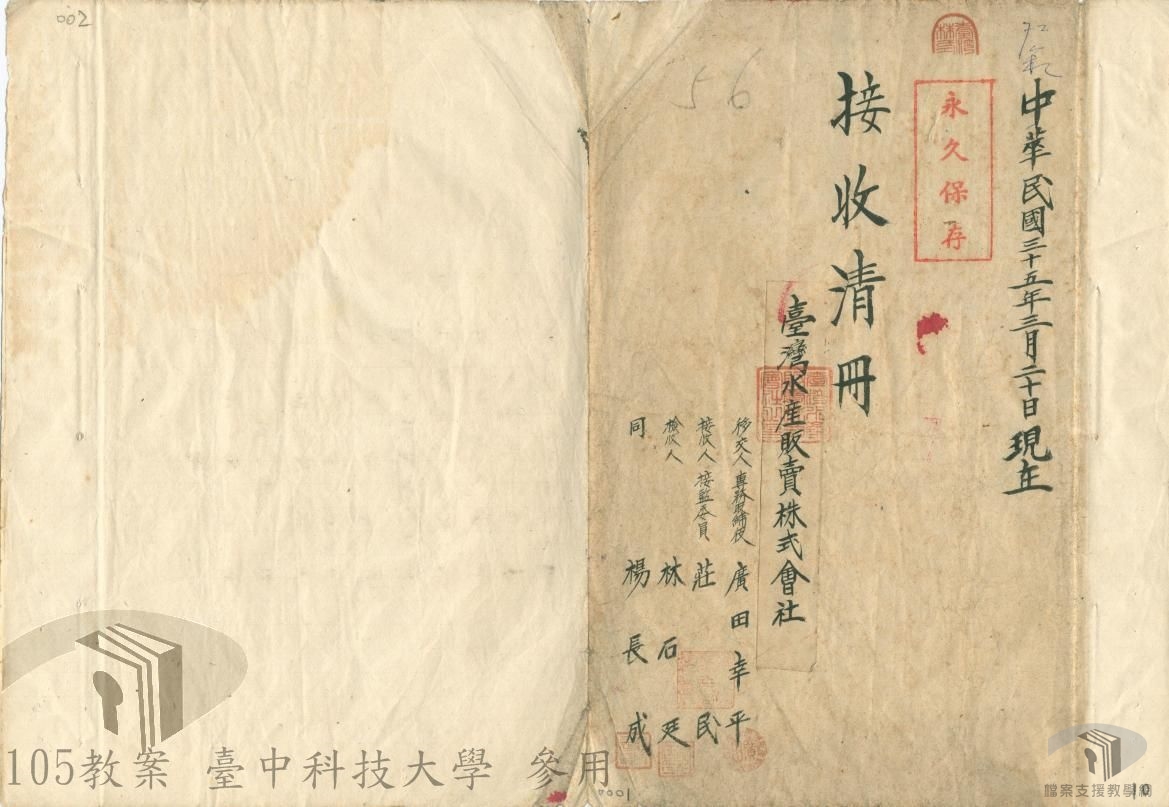 002
中華民國三十五年三月二十日現在
永久保存
56
接收清冊
臺灣水產販賣株式會社
移交人 專務取締役 廣田幸平
接收人 接監委員 莊 民
檢收人 林石廷
同 楊長成
0001
10
105教案 臺中科技大學 參用
檔案支援教學網